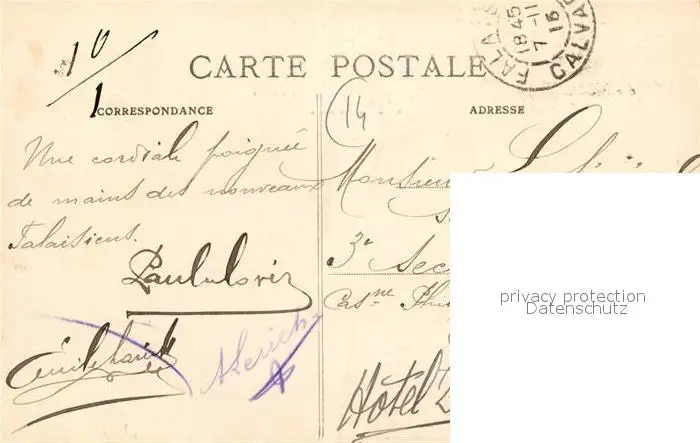 10/1
CARTE POSTALE
FALAIS
18 45
7 - 11
15
CALVAD
CORRESPONDANCE
ADRESSE
14
Une cordiale poignée
de mains des nouveaux
Falaisiens.
Monsieur
3e Sec
Casne
Hotel
privacy protection
Datenschutz